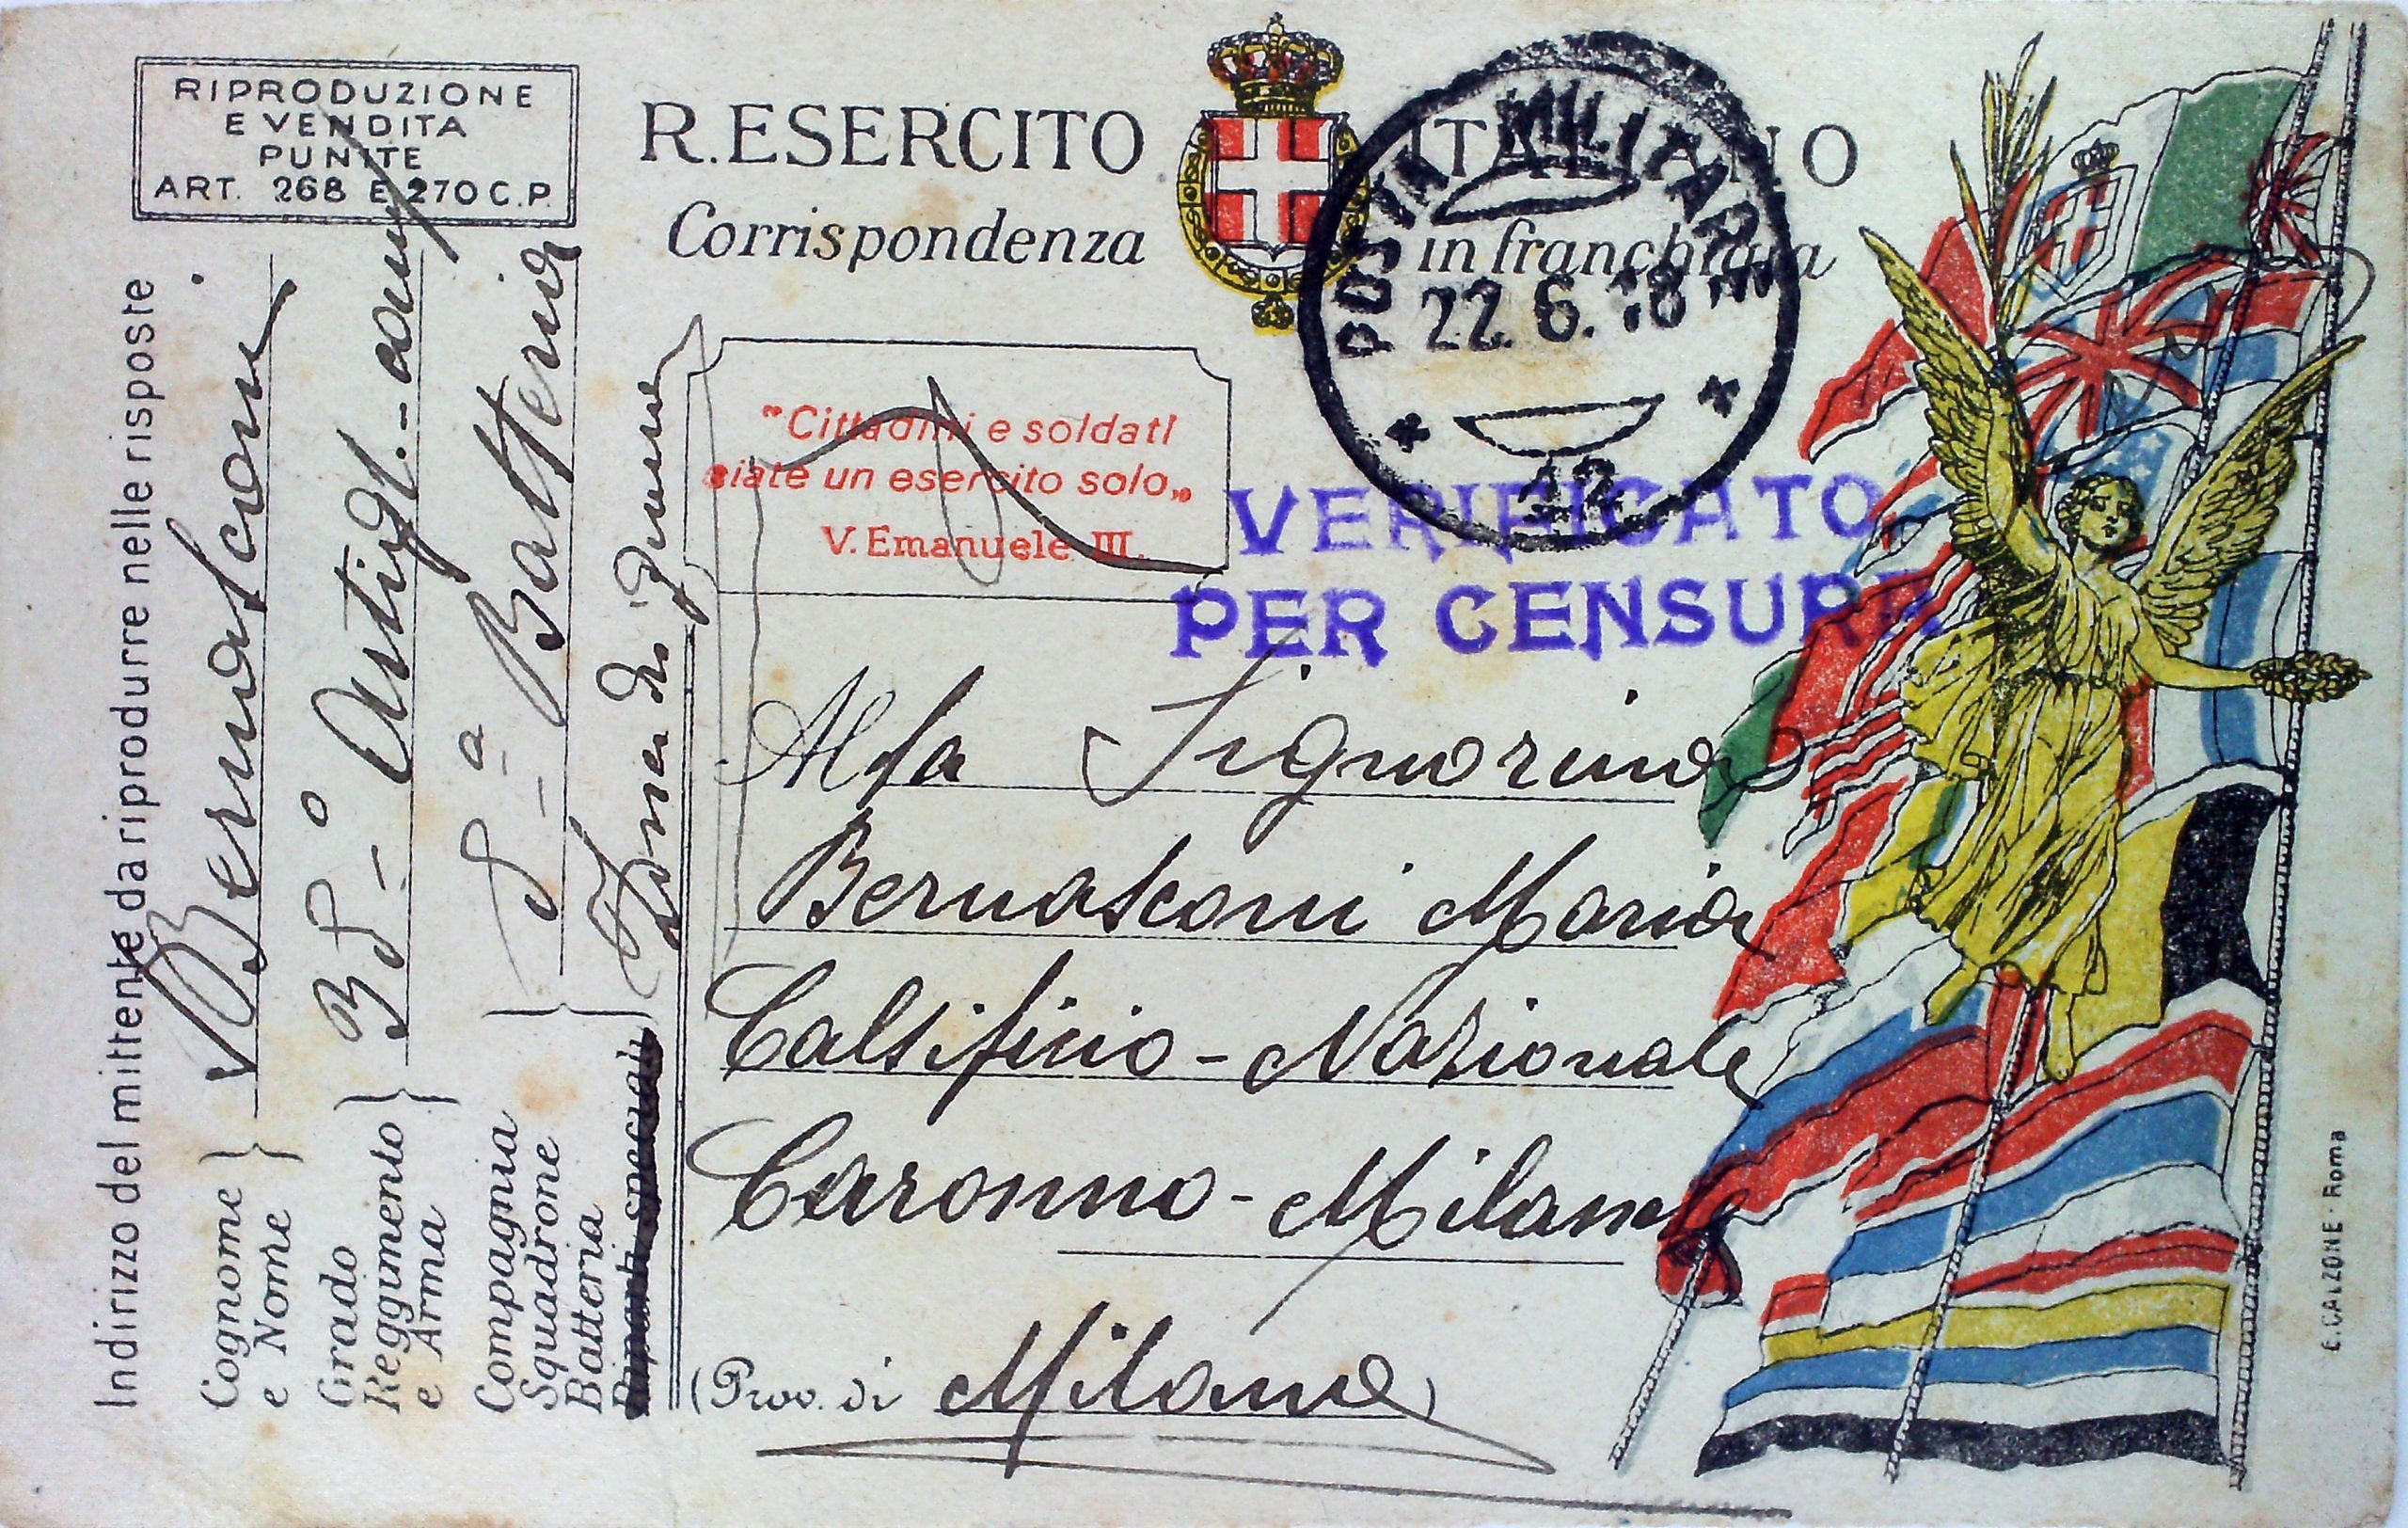 RIPRODUZIONE
E VENDITA
PUNITE
ART. 268 E 270 C.P.
R. ESERCITO ITALIANO
Corrispondenza in franchigia
POSTA MILITARE
22. 6. 18
12
"Cittadini e soldati
siate un esercito solo„
V. Emanuele III.
VERIFICATO
PER CENSURA
Alla Signorina
Bernasconi Maria
Calsificio - Nazionale
Caronno - Milano
(Prov. di Milano)
Indirizzo del mittente da riprodurre nelle risposte
Cognome
e Nome
Bernasconi
Grado
Reggimento
e Arma
Artigl. - camp
Compagnia
Squadrone
Batteria
Riparti speciali
Batteria
Zona di guerra
E. CALZONE - Roma